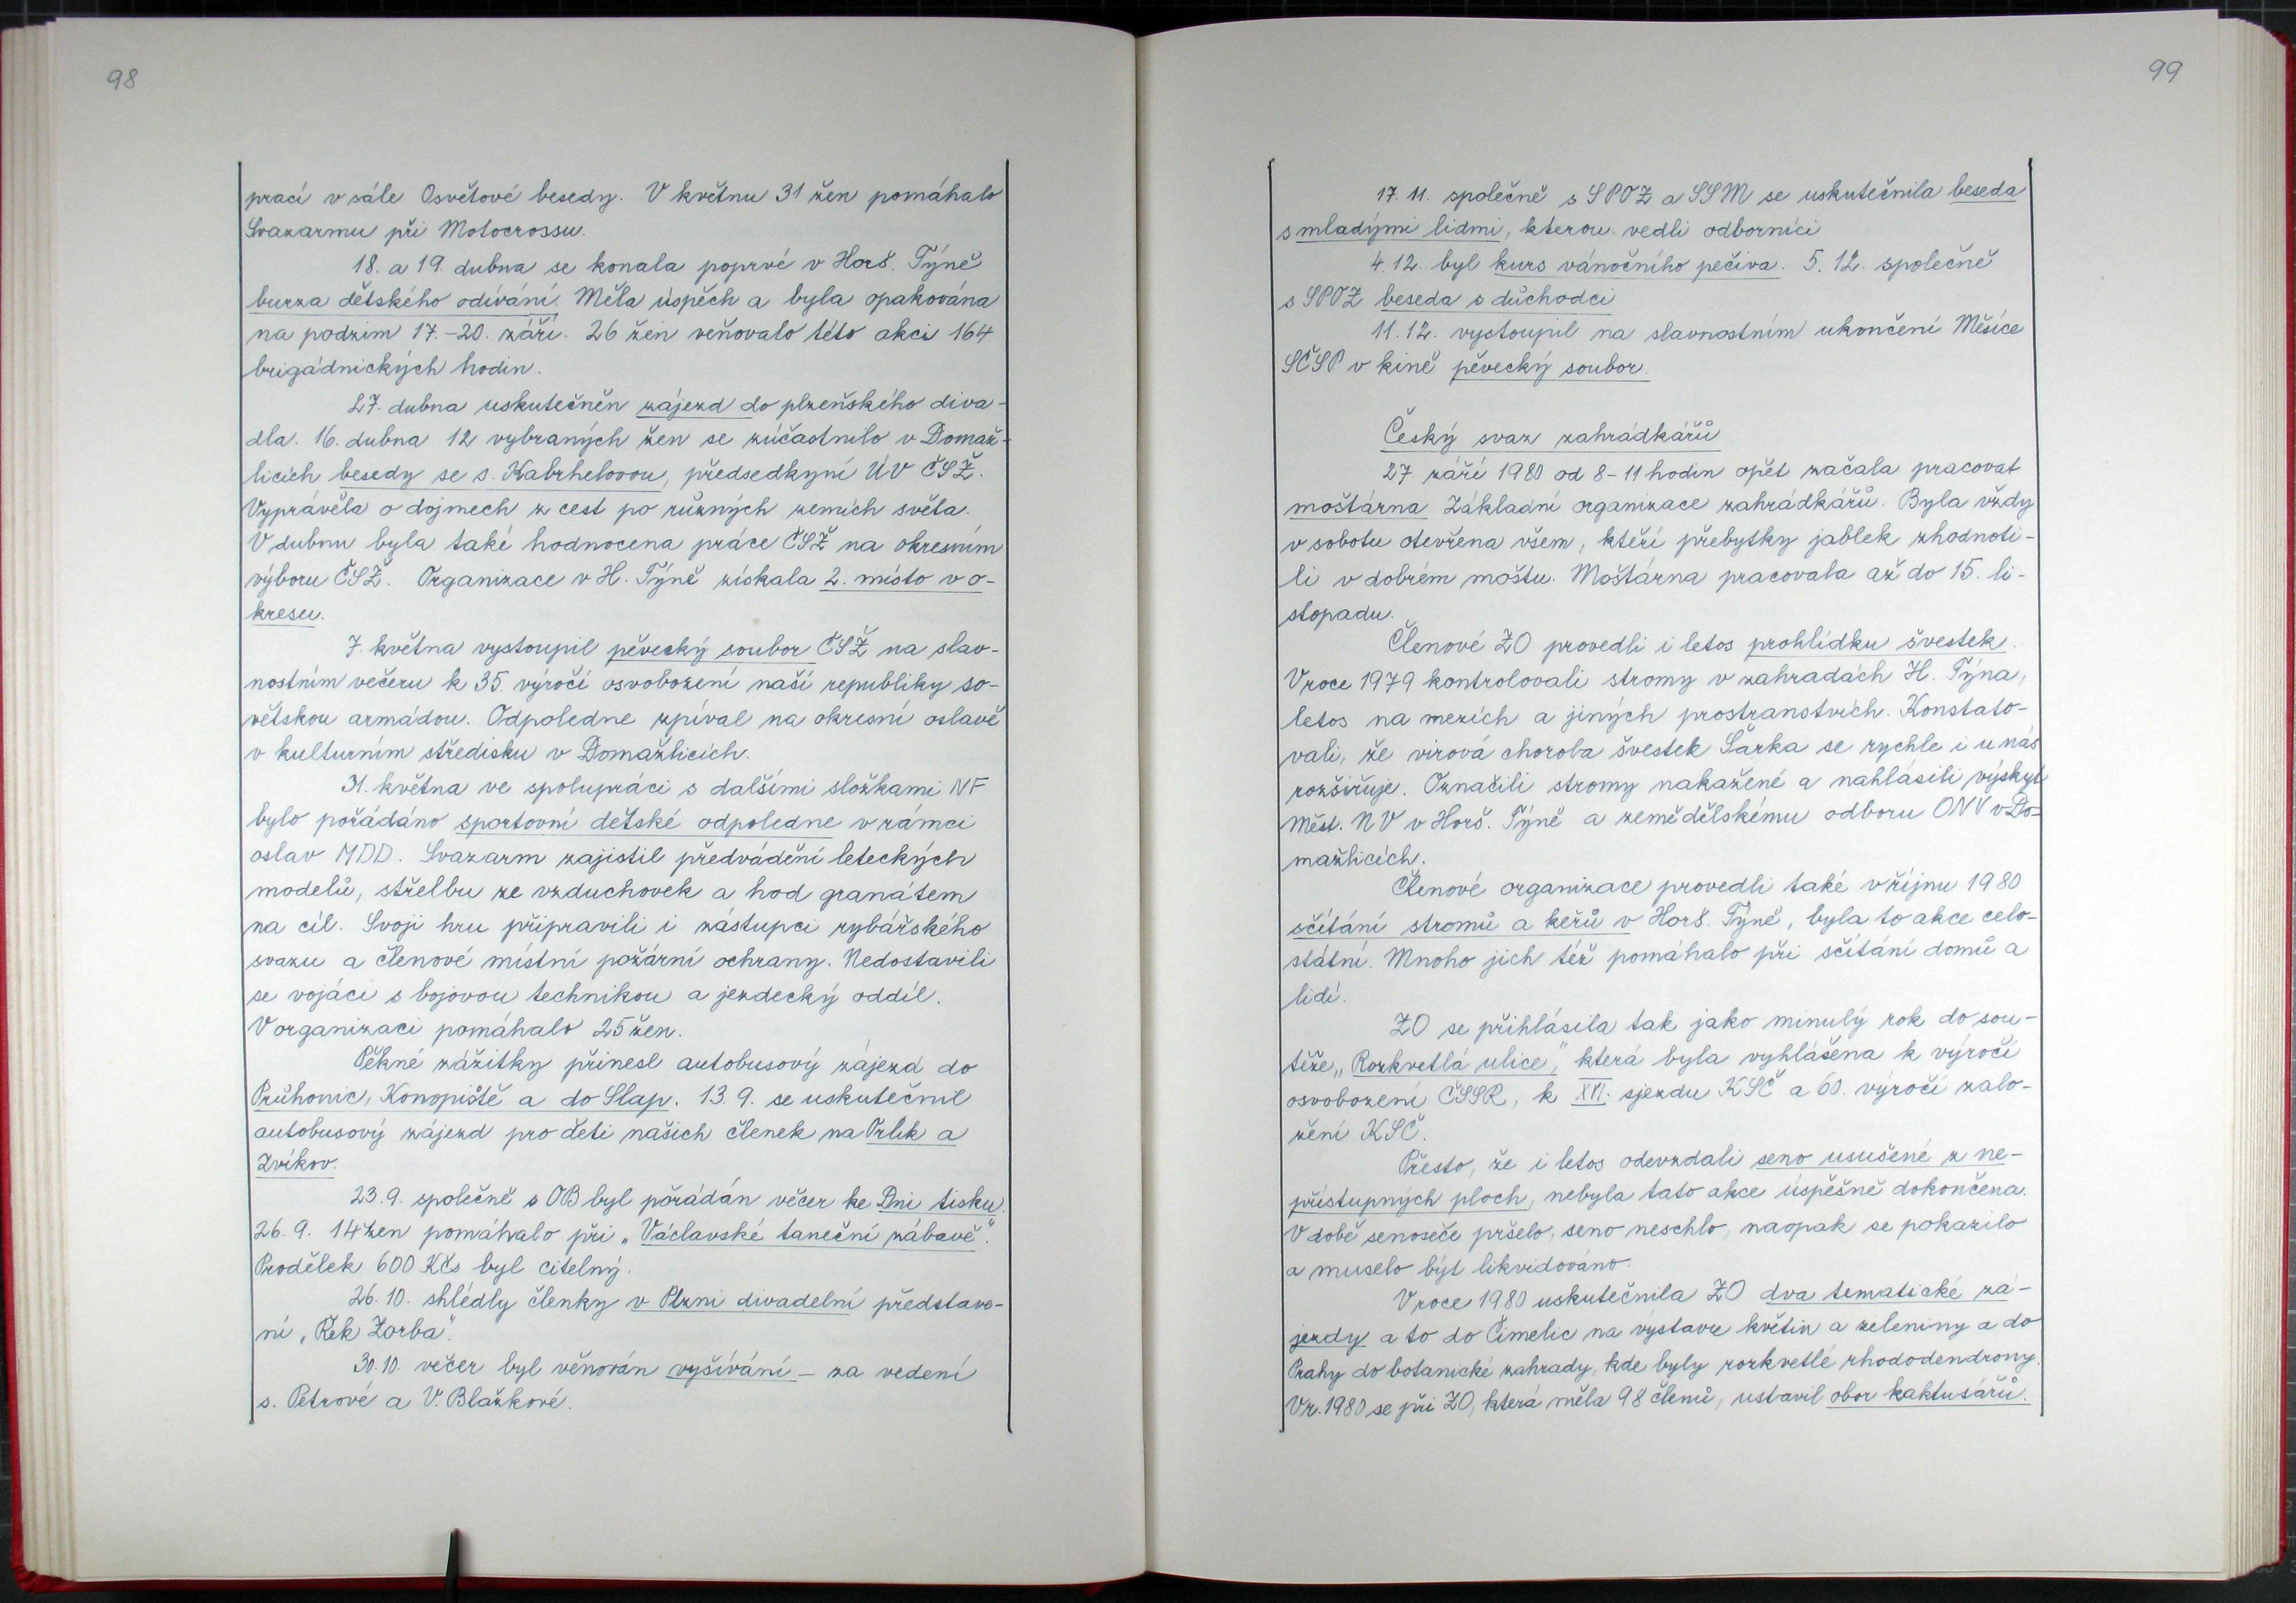 98
prací v sále Osvětové besedy. V květnu 31 žen pomáhalo
Svazarmu při Motocrossu.
18. a 19. dubna se konala poprvé v Horš. Týně
burza dětského odívání. Měla úspěch a byla opakována
na podzim 17.-20. září. 26 žen veňovalo této akci 164
brigádnických hodin.
27. dubna uskutečněn zájezd do plzeňského diva-
dla. 16. dubna 12 vybraných žen se zúčastnilo v Domaž-
licích besedy se s. Kabrhelovou, předsedkyní ÚV ČSŽ.
Vyprávěla o dojmech z cest po různých zemích světa.
V dubnu byla také hodnocena práce ČSŽ na okresním
výboru ČSŽ. Organizace v H. Týně získala 2. místo v o-
kresu.
7. května vystoupil pěvecký soubor ČSŽ na slav-
nostním večeru k 35. výročí osvobození naší republiky so-
větskou armádou. Odpoledne zpíval na okresní oslavě
v kulturním středisku v Domažlicích.
31. května ve spolupráci s dalšími složkami NF
bylo pořádáno sportovní dětské odpoledne v rámci
oslav MDD. Svazarm zajistil předvádění leteckých
modelů, střelbu ze vzduchovek a hod granátem
na cíl. Svoji hru připravili i zástupci rybářského
svazu a členové místní požární ochrany. Nedostavili
se vojáci s bojovou technikou a jezdecký oddíl.
V organizaci pomáhalo 25 žen.
Pěkné zážitky přinesl autobusový zájezd do
Průhonic, Konopiště a do Slap. 13. 9. se uskutečnil
autobusový zájezd pro děti našich členek na Orlík a
Zvíkov.
23. 9. společně s OB byl pořádán večer ke Dni tisku.
26. 9. 14 žen pomáhalo při „Václavské taneční zábavě".
Prodělek 600 Kčs byl citelný.
26. 10. shlédly členky v Plzni divadelní představe-
ní „Řek Zorba".
30. 10. večer byl věnován vyšívání - za vedení
s. Petrové a V. Blažkové.
99
17. 11. společně s SPOZ a SSM se uskutečnila beseda
s mladými lidmi, kterou vedli odborníci
4. 12. byl kurs vánočního pečiva. 5. 12. společně
s SPOZ beseda s důchodci
11. 12. vystoupil na slavnostním ukončení Měsíce
SČSP v kině pěvecký soubor.
Český svaz zahrádkářů
27. září 1980 od 8-11 hodin opět začala pracovat
moštárna Základní organizace zahrádkářů. Byla vždy
v sobotu otevřena všem, kteří přebytky jablek zhodnoti-
li v dobrém moštu. Moštárna pracovala až do 15. li-
stopadu.
Členové ZO provedli i letos prohlídku švestek.
V roce 1979 kontrolovali stromy v zahradách H. Týna,
letos na mezích a jiných prostranstvích. Konstato-
vali, že virová choroba švestek Šarka se rychle i u nás
rozšiřuje. Označili stromy nakažené a nahlásili výskyt
Měst. NV v Horš. Týně a zemědělskému odboru ONV v Do-
mažlicích.
Členové organizace provedli také v říjnu 1980
sčítání stromů a keřů v Horš. Týně, byla to akce celo-
státní. Mnoho jich též pomáhalo při sčítání domů a
lidí.
ZO se přihlásila tak jako minulý rok do sou-
těže „Rozkvetlá ulice", která byla vyhlášena k výročí
osvobození ČSSR, k XVI. sjezdu KSČ a 60. výročí zalo-
žení KSČ.
Přesto, že i letos odevzdali seno usušené z ne-
přístupných ploch, nebyla tato akce úspěšně dokončena.
V době senoseče pršelo, seno neschlo, naopak se pokazilo
a muselo být likvidováno.
V roce 1980 uskutečnila ZO dva tematické zá-
jezdy a to do Čimelic na výstavu květin a zeleniny a do
Prahy do botanické zahrady, kde byly rozkvetlé rhododendrony.
V r. 1980 se při ZO, která měla 98 členů, ustavil obor kaktusářů.